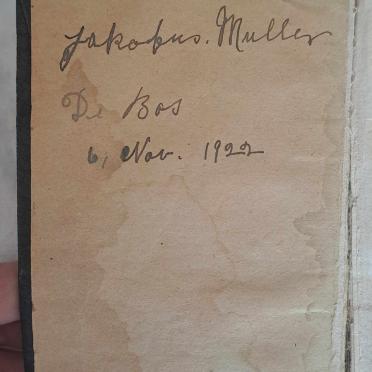 Jakobus. Muller
De Bos
6, Nov. 1922